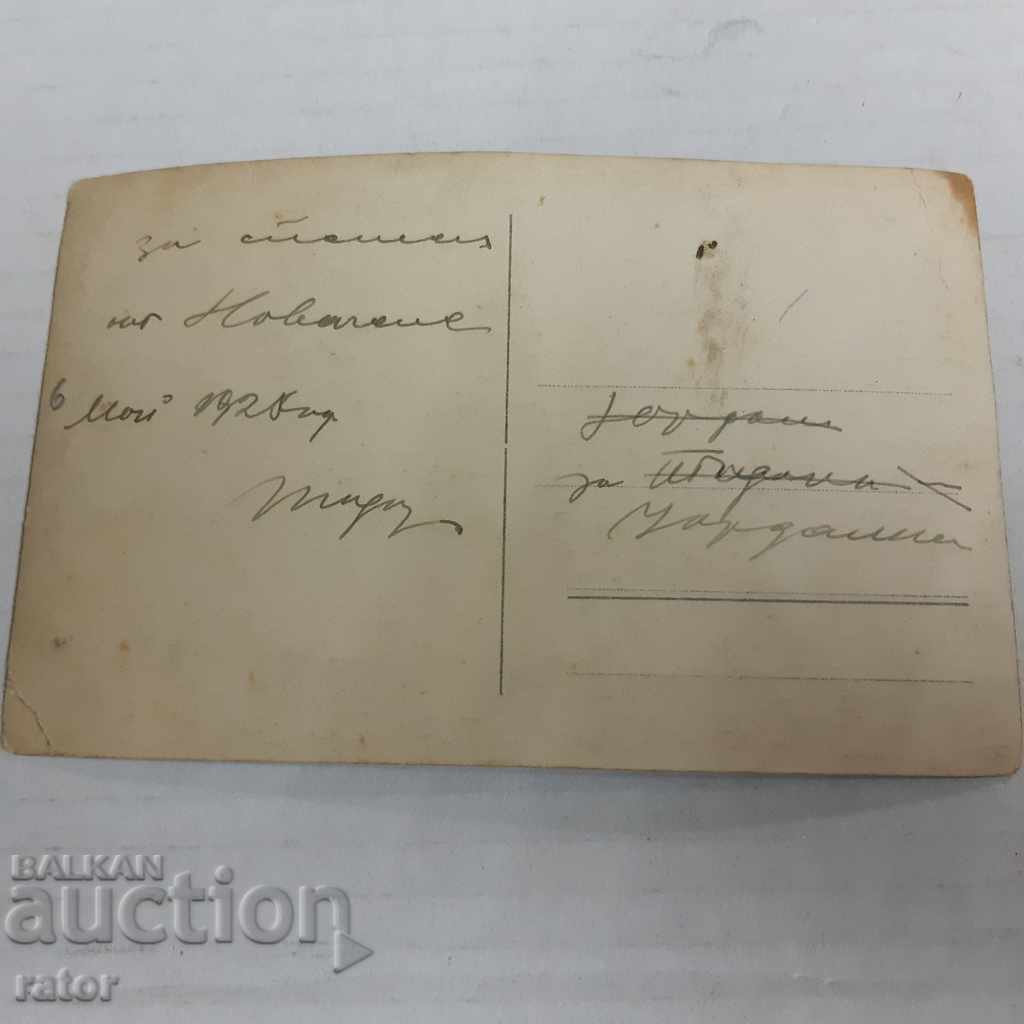 за спомен
от Новачене
6 Мой 1928 год
Йордан
за
Йорданка
BALKAN
auction
rator